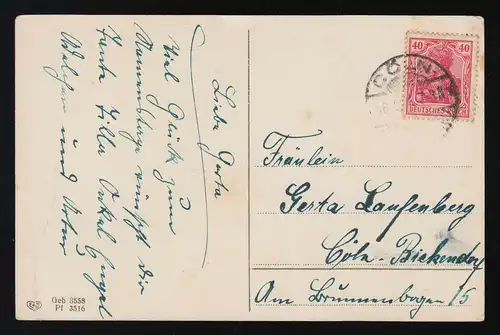 Liebe Gerta
Viel Glück zum
Namenstage wünscht Dir
Tante Zilla Onkel
und Artur
Geb 3558
Pf 3516
40 40
DEUTSCHES
CÖLN
Fräulein
Gerta Laufenberg
Cöln-Bickendorf
Am Brunnenbogen 15